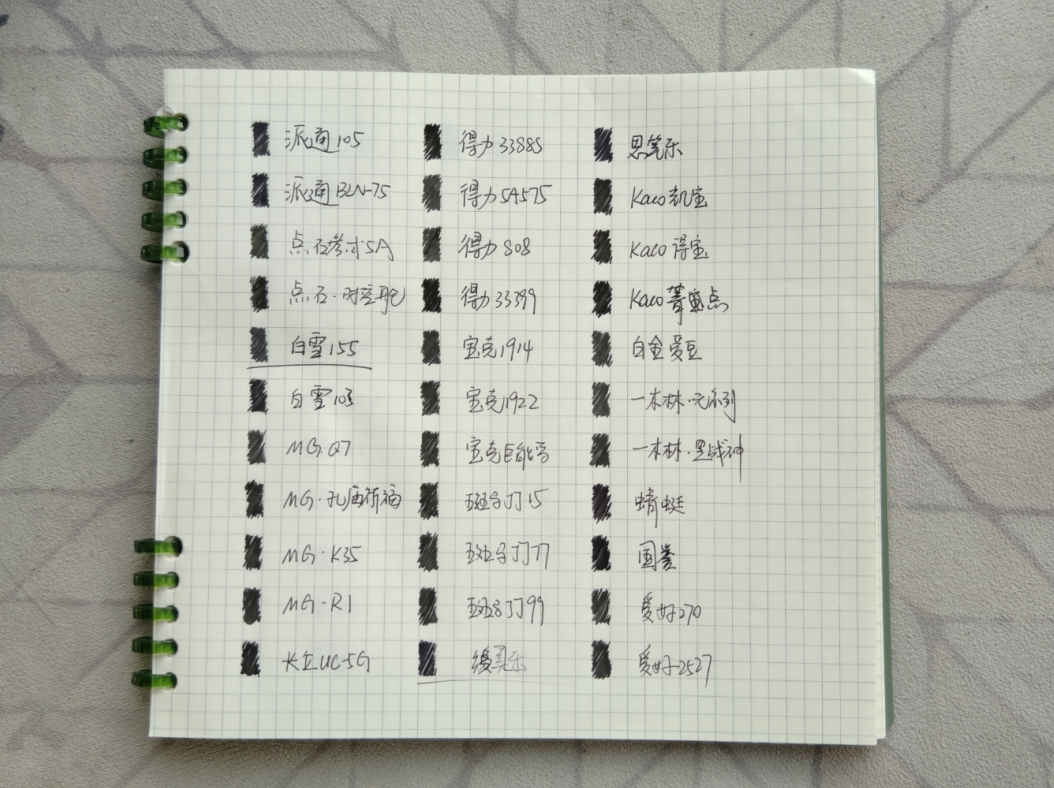 派通105
派通BLN-75
点石考试5A
点石·时空舱
白雪155
白雪103
MG Q7
MG·孔庙祈福
MG·K35
MG·R1
长立UC-5G
得力33885
得力SA575
得力S08
得力33399
宝克1914
宝克1922
宝克巨能写
斑马JJ15
斑马JJ77
斑马JJ99
缓买乐
思笔乐
Kaco凯宝
Kaco得宝
Kaco菁点
白金爱豆
一本林·元系列
一木林·黑战神
蜻蜓
国誉
爱好270
爱好2527